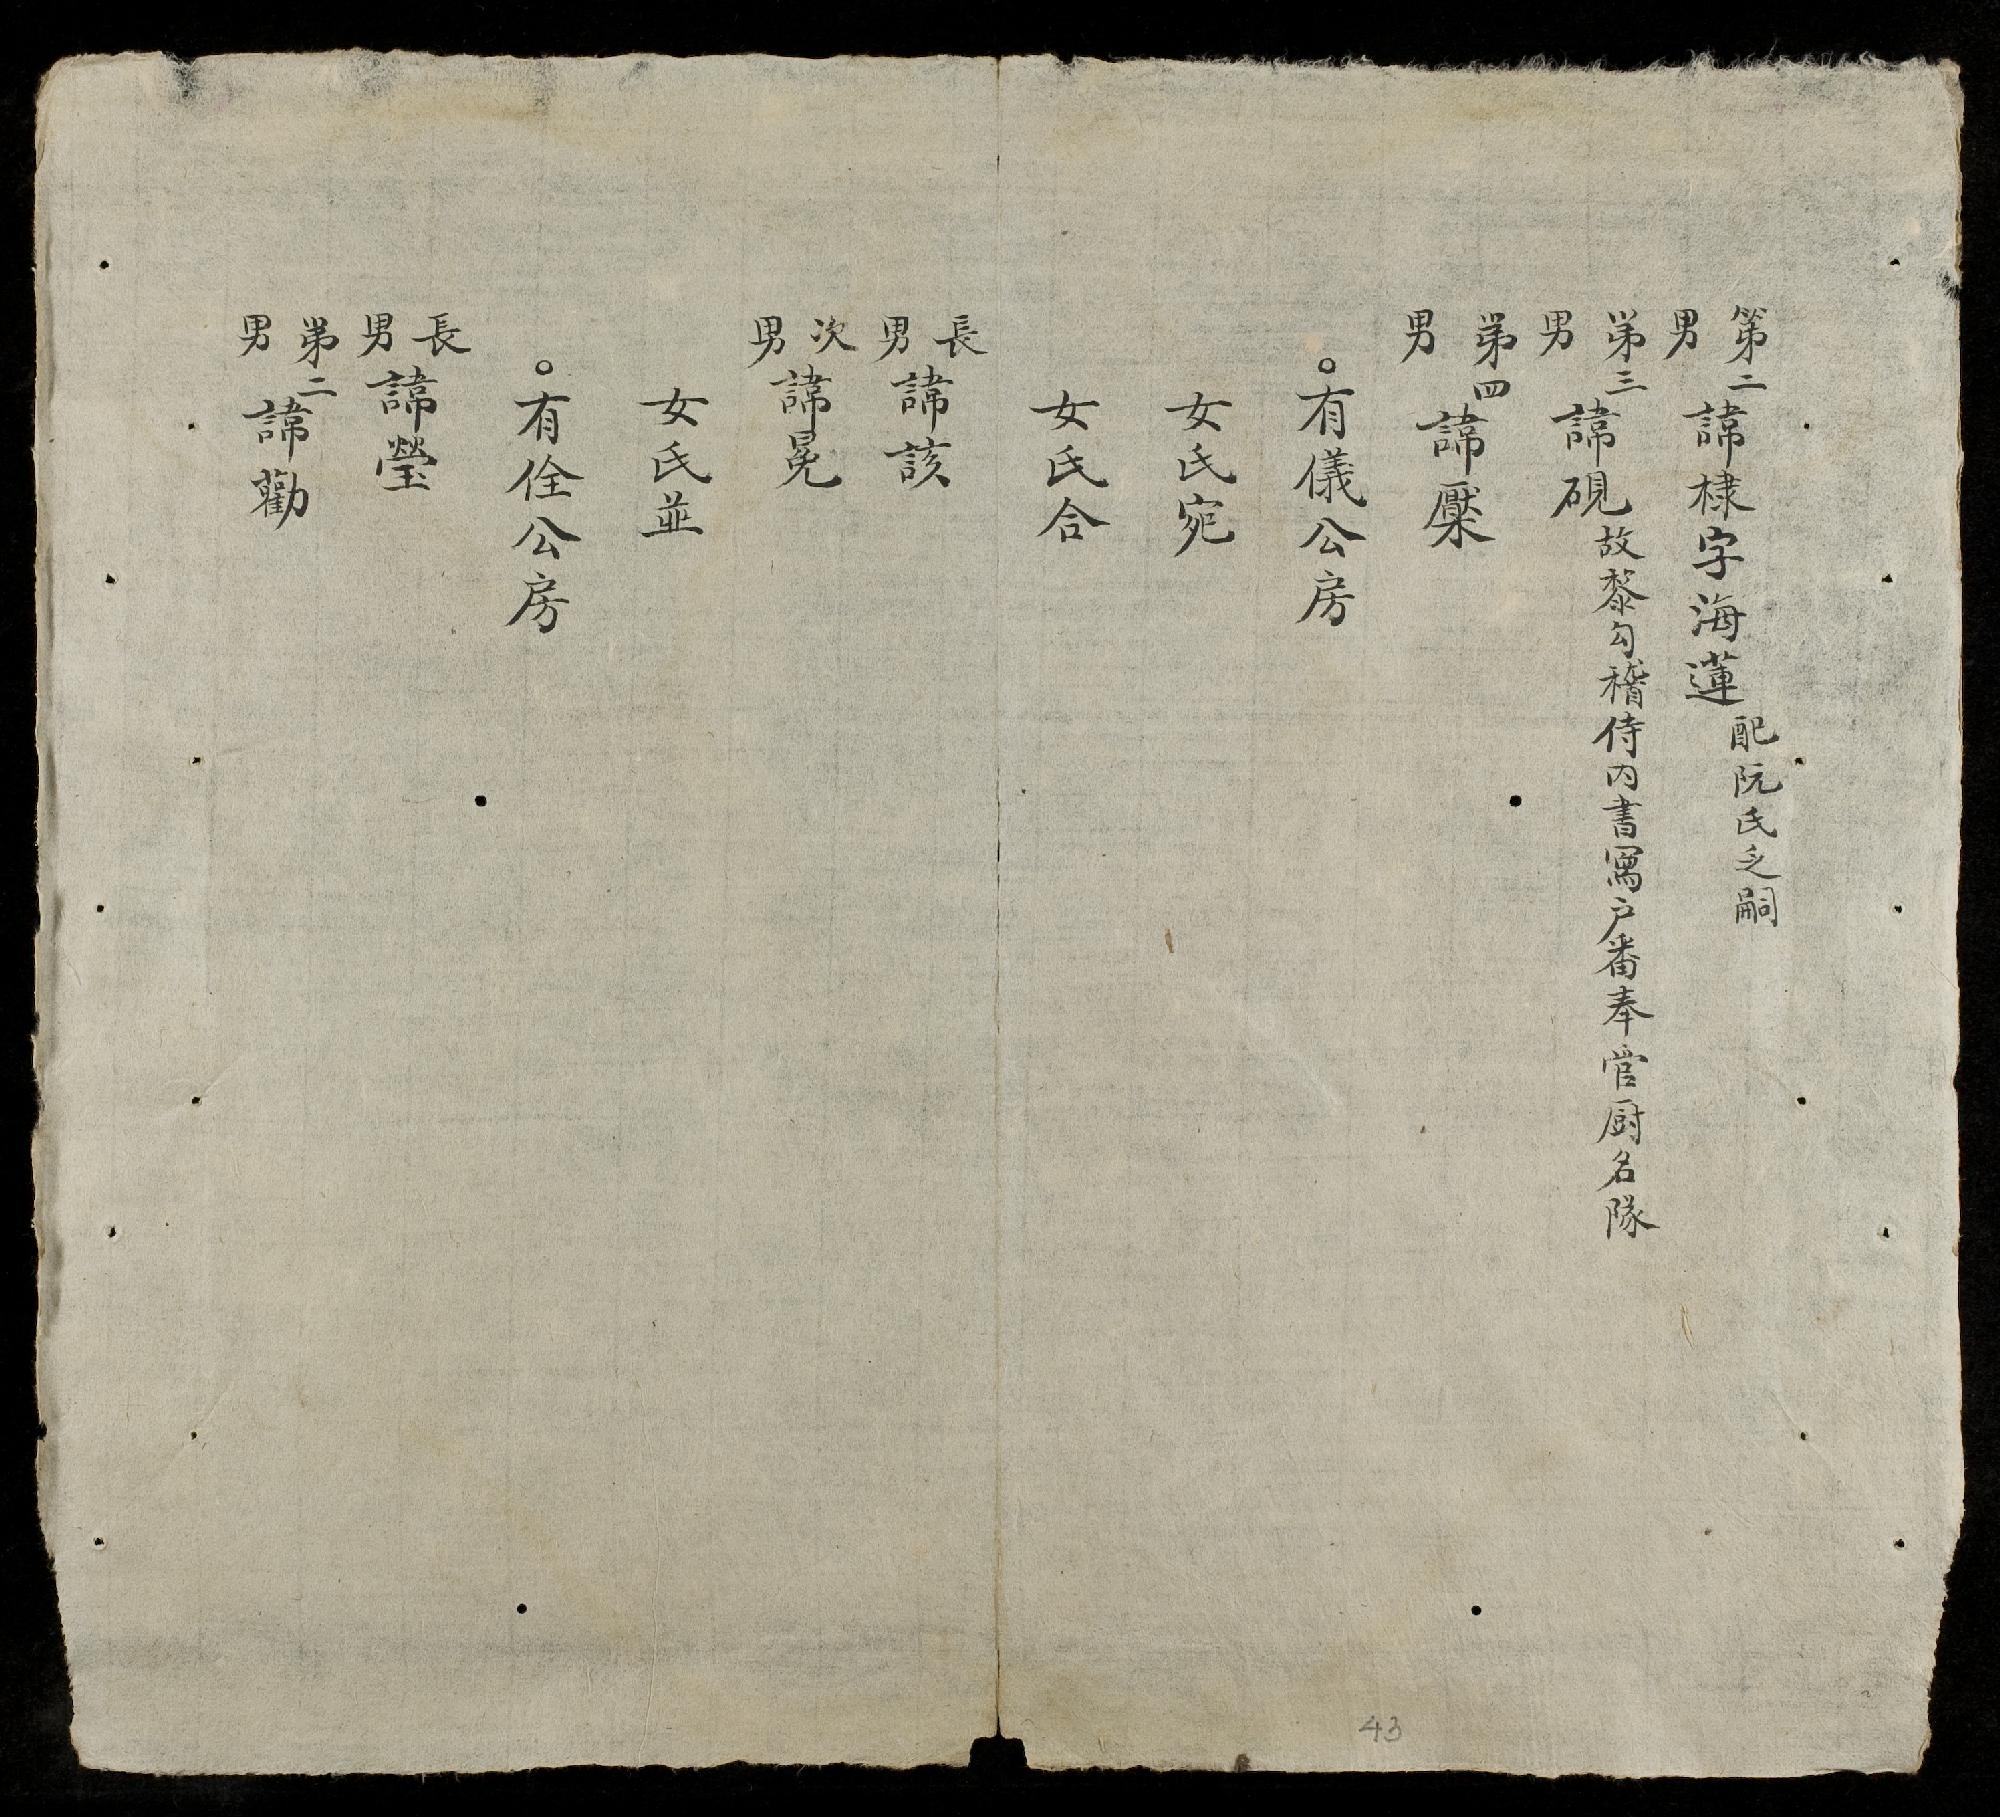 第二男諱棣字海蓮配阮氏乏嗣
第三男諱硯故黎勾稽侍内書寫户番奉管厨名隊
第四男諱檿
○有儀公房
女氏宛
女氏合
長男諱該
次男諱冕
女氏並
○有佺公房
長男諱瑩
第二男諱勸
43